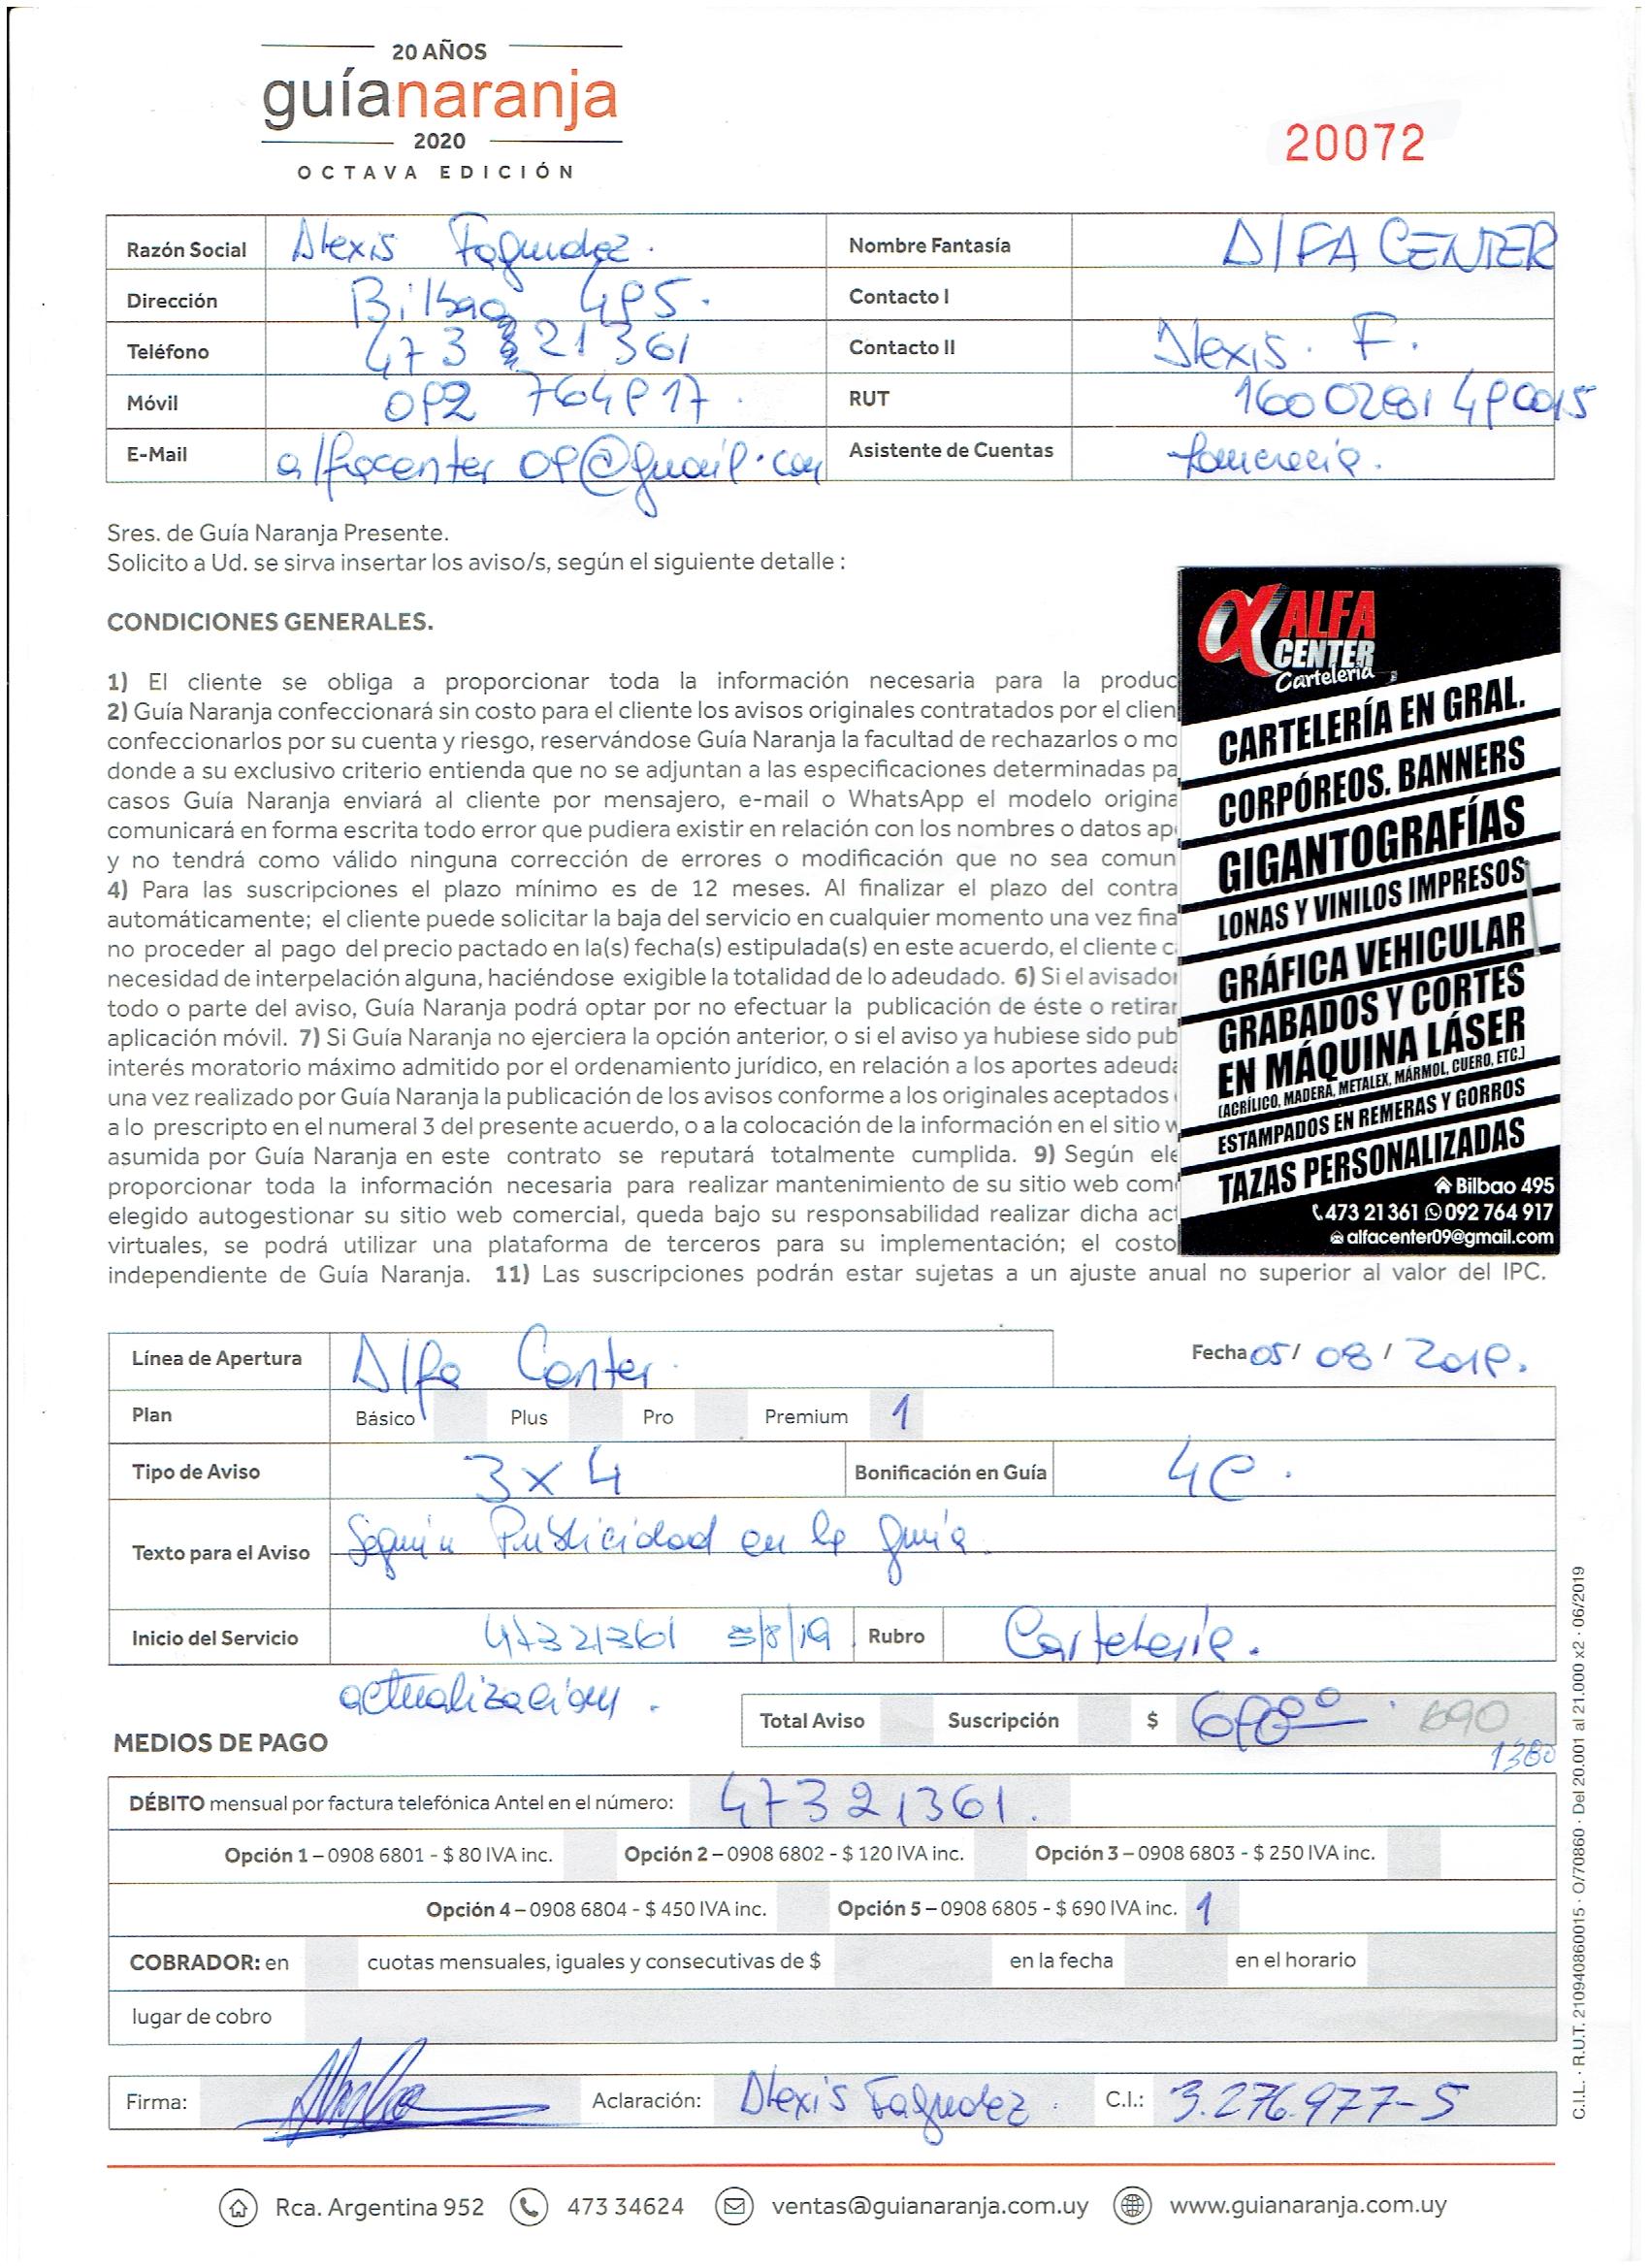 20 AÑOS
guíanaranja
2020
OCTAVA EDICIÓN
20072
Razón Social Alexis Fagundez. Nombre Fantasía Alfa CENTER
Dirección Bilbao 495. Contacto I
Teléfono 473 21 361 Contacto II Alexis. F.
Móvil 092 764917. RUT 1600281490015
E-Mail alfacenter09@gmail.com Asistente de Cuentas
Sres. de Guía Naranja Presente.
Solicito a Ud. se sirva insertar los aviso/s, según el siguiente detalle :
CONDICIONES GENERALES.
1) El cliente se obliga a proporcionar toda la información necesaria para la produc
2) Guía Naranja confeccionará sin costo para el cliente los avisos originales contratados por el clien
confeccionarlos por su cuenta y riesgo, reservándose Guía Naranja la facultad de rechazarlos o mo
donde a su exclusivo criterio entienda que no se adjuntan a las especificaciones determinadas pa
casos Guía Naranja enviará al cliente por mensajero, e-mail o WhatsApp el modelo origina
comunicará en forma escrita todo error que pudiera existir en relación con los nombres o datos ap
y no tendrá como válido ninguna corrección de errores o modificación que no sea comun
4) Para las suscripciones el plazo mínimo es de 12 meses. Al finalizar el plazo del contra
automáticamente; el cliente puede solicitar la baja del servicio en cualquier momento una vez fina
no proceder al pago del precio pactado en la(s) fecha(s) estipulada(s) en este acuerdo, el cliente c
necesidad de interpelación alguna, haciéndose exigible la totalidad de lo adeudado. 6) Si el avisador
todo o parte del aviso, Guía Naranja podrá optar por no efectuar la publicación de éste o retirar
aplicación móvil. 7) Si Guía Naranja no ejerciera la opción anterior, o si el aviso ya hubiese sido pub
interés moratorio máximo admitido por el ordenamiento jurídico, en relación a los aportes adeuda
una vez realizado por Guía Naranja la publicación de los avisos conforme a los originales aceptados
a lo prescripto en el numeral 3 del presente acuerdo, o a la colocación de la información en el sitio w
asumida por Guía Naranja en este contrato se reputará totalmente cumplida. 9) Según ele
proporcionar toda la información necesaria para realizar mantenimiento de su sitio web com
elegido autogestionar su sitio web comercial, queda bajo su responsabilidad realizar dicha act
virtuales, se podrá utilizar una plataforma de terceros para su implementación; el costo
independiente de Guía Naranja. 11) Las suscripciones podrán estar sujetas a un ajuste anual no superior al valor del IPC.
ALFA
CENTER
Cartelería
CARTELERÍA EN GRAL.
CORPÓREOS. BANNERS
GIGANTOGRAFÍAS
LONAS Y VINILOS IMPRESOS
GRÁFICA VEHICULAR
GRABADOS Y CORTES
EN MÁQUINA LÁSER
(ACRÍLICO, MADERA, METALEX, MÁRMOL, CUERO, ETC.)
ESTAMPADOS EN REMERAS Y GORROS
TAZAS PERSONALIZADAS
Bilbao 495
473 21 361 092 764 917
alfacenter09@gmail.com
Línea de Apertura Alfa Center. Fecha 05/ 08 / 2019.
Plan Básico Plus Pro Premium 1
Tipo de Aviso 3 x 4 Bonificación en Guía 4C.
Texto para el Aviso Según Publicidad en la guía.
Inicio del Servicio 47321361 5/8/19 Rubro Cartelería.
actualización.
Total Aviso Suscripción $ 690 690
1380
MEDIOS DE PAGO
DÉBITO mensual por factura telefónica Antel en el número: 47321361.
Opción 1 – 0908 6801 - $ 80 IVA inc. Opción 2 – 0908 6802 - $ 120 IVA inc. Opción 3 – 0908 6803 - $ 250 IVA inc.
Opción 4 – 0908 6804 - $ 450 IVA inc. Opción 5 – 0908 6805 - $ 690 IVA inc. 1
COBRADOR: en cuotas mensuales, iguales y consecutivas de $ en la fecha en el horario
lugar de cobro
Firma: Aclaración: Alexis Fagundez. C.I.: 3.276.977-5
Rca. Argentina 952 473 34624 ventas@guianaranja.com.uy www.guianaranja.com.uy
C.I.L. · R.U.T. 210940860015 · O/70860 · Del 20.001 al 21.000 x2 · 06/2019